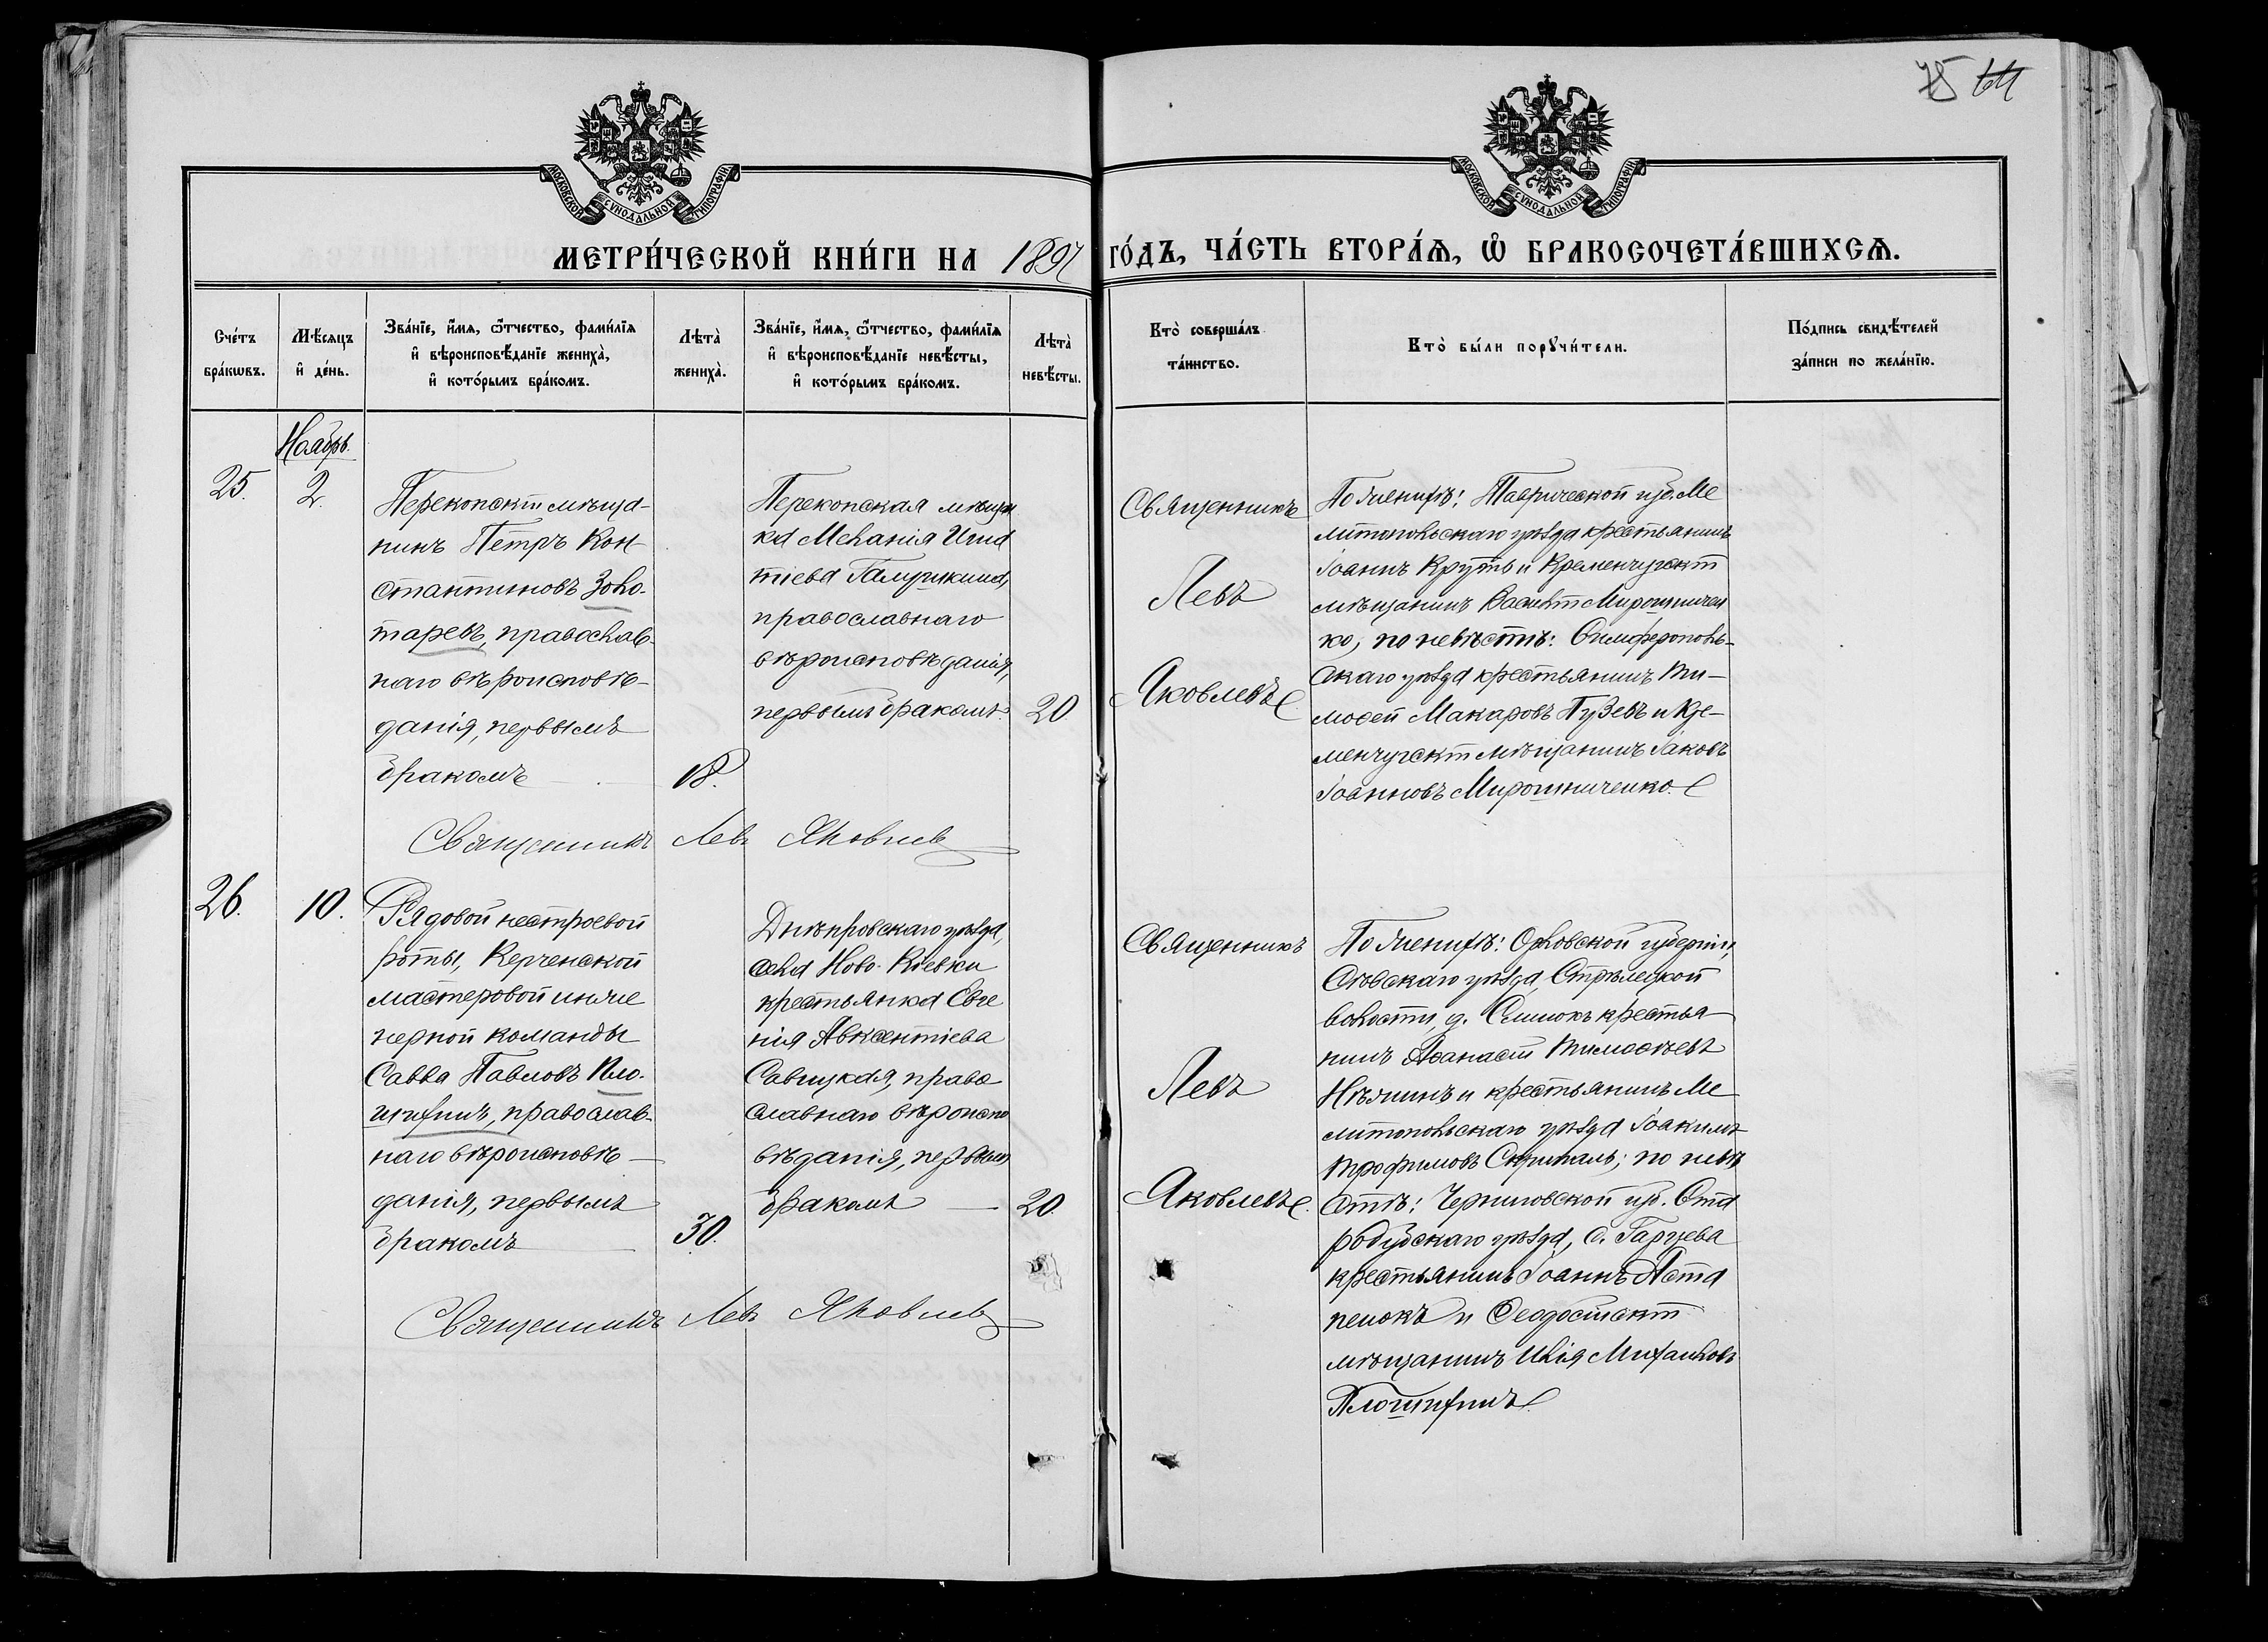 75 64
МОСКОВСКОЙ СѴНОДАЛЬНОЙ ТИПОГРАФІИ
МОСКОВСКОЙ СѴНОДАЛЬНОЙ ТИПОГРАФІИ
МЕТРИ́ЧЕСКОЙ КНИ́ГИ НА 1897 ГО́ДЪ, ЧА́СТЬ ВТОРА́Ѧ, Ѽ БРАКОСОЧЕТА́ВШИХСѦ.
Сче́тъ
бра́кωвъ.
Мѣ́сяцъ
и҆ де́нь.
Зва́нїе, и҆́мѧ, ѻ҆́тчество, фами́лїѧ
и҆ вѣроисповѣ́данїе жениха̀,
и҆ кото́рымъ бра́комъ.
Лѣта̀
жениха̀.
Зва́нїе, и҆́мѧ, ѻ҆́тчество, фами́лїѧ
и҆ вѣроисповѣ́данїе невѣ́сты,
и҆ кото́рымъ бра́комъ.
Лѣта̀
невѣ́сты.
Кто̀ соверша́лъ
та́инство.
Кто̀ бы́ли порꙋчи́тели.
По́дпись свидѣ́телей
за́писи по жела́нїю.
Ноябрь.
25.
2.
Перекопскій мѣща-
нинъ Петръ Кон-
стантиновъ Золо-
таревъ, православ-
наго вѣроисповѣ-
данія, первымъ
бракомъ
18.
Перекопская мѣщан
ка Меланія Игна
тіева Галушкина,
православнаго
вѣроисповѣданія,
первымъ бракомъ.
20
Священникъ
Левъ
Яковлевъ
По женихѣ: Таврической губ. Ме
литопольскаго уѣзда крестьянинъ
Іоаннъ Круть и Кременчугскій
мѣщанинъ Василій Мирошничен
ко; по невѣстѣ: Симферополь-
скаго уѣзда крестьянинъ Ти-
моѳей Макаровъ Пузевъ и Кре-
менчугскій мѣщанинъ Іаковъ
Іоанновъ Мирошниченко.
Священникъ Левъ Яковлев
26.
10.
Рядовой нестроевой
роты, Керченской
мастеровой инже
нерной команды
Савва Павловъ Пло-
шихинъ, православ-
наго вѣроисповѣ-
данія, первымъ
бракомъ
30.
Днѣпровскаго уѣзда,
села Ново-Кіевки
крестьянка Евге
нія Авксентіева
Савицкая, право
славнаго вѣроиспо
вѣданія, первымъ
бракомъ
20.
Священникъ
Левъ
Яковлевъ.
По женихѣ: Орловской губерніи,
Сѣвскаго уѣзда, Стрѣлецкой
волости, д. крестья-
нинъ Аѳанасій Тимоѳеевъ
и крестьянинъ Ме
литопольскаго уѣзда Іоакимъ
Трофимовъ Скрипаль; по невѣ
стѣ: Черниговской губ. Ста
родубскаго уѣзда, с. Гарцева
крестьянинъ Іоаннъ Аста
пенокъ и Ѳеодосійскій
мѣщанинъ Илія Михаиловъ
Плошихинъ.
Священникъ Левъ Яковлев